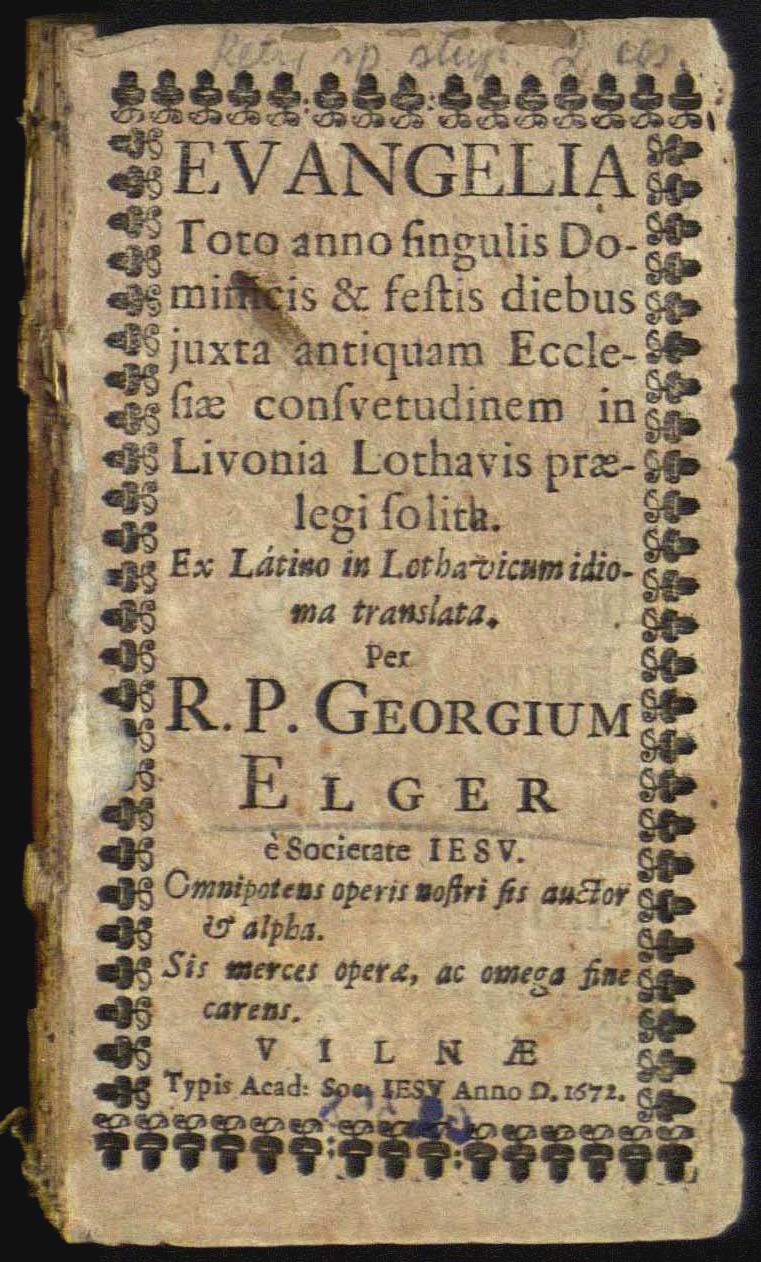 EVANGELIA
Toto anno ſingulis Do-
minicis & feſtis diebus
juxta antiquam Eccle-
ſiæ conſvetudinem in
Livonia Lothavis præ-
legi ſolita.
Ex Látino in Lothavicum idio-
ma translata.
Per
R. P. GEORGIUM
ELGER
è Societate IESV.
Omnipotens operis noſtri ſis auctor
& alpha.
Sis merces operæ, ac omega fine
carens.
VILNÆ
Typis Acad: Soc. IESV Anno D. 1672.